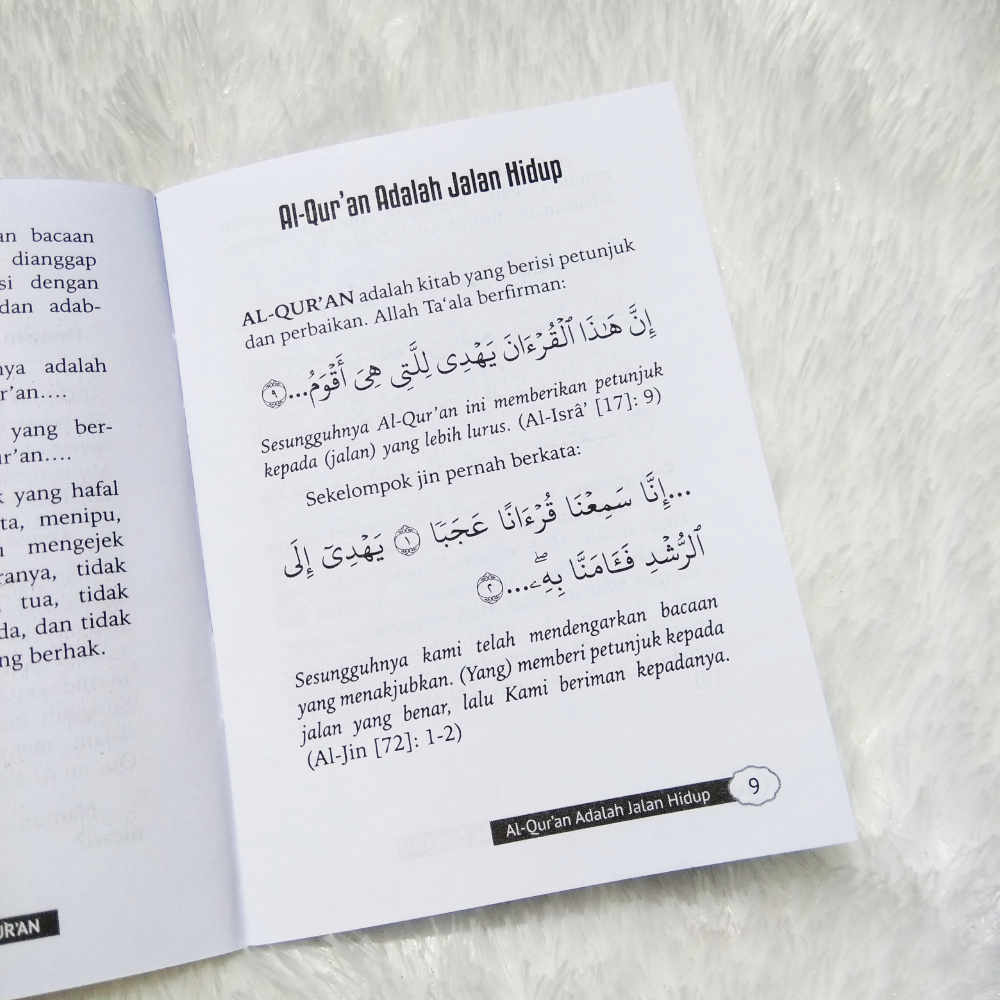 an bacaan
dianggap
si dengan
dan adab-
nya adalah
r'an....
yang ber-
ur'an....
yang hafal
ta, menipu,
mengejek
ranya, tidak
tua, tidak
da, dan tidak
ng berhak.
UR'AN
Al-Qur'an Adalah Jalan Hidup
AL-QUR'AN adalah kitab yang berisi petunjuk
dan perbaikan. Allah Ta‘ala berfirman:
إِنَّ هَـٰذَا ٱلْقُرْءَانَ يَهْدِى لِلَّتِى هِىَ أَقْوَمُ... ٩
Sesungguhnya Al-Qur'an ini memberikan petunjuk
kepada (jalan) yang lebih lurus. (Al-Isrâ' [17]: 9)
Sekelompok jin pernah berkata:
...إِنَّا سَمِعْنَا قُرْءَانًا عَجَبًا ١ يَهْدِىٓ إِلَى
ٱلرُّشْدِ فَـَٔامَنَّا بِهِۦ ۖ... ٢
Sesungguhnya kami telah mendengarkan bacaan
yang menakjubkan. (Yang) memberi petunjuk kepada
jalan yang benar, lalu Kami beriman kepadanya.
(Al-Jin [72]: 1-2)
Al-Qur'an Adalah Jalan Hidup 9